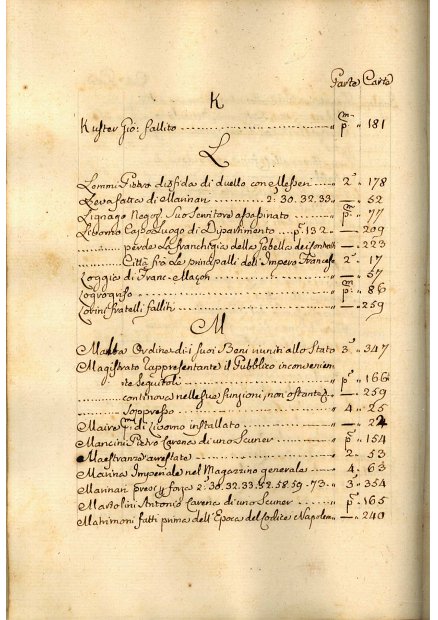 Parte Carte
K
Kuster Gio: fallito ............ " p.mo " 181
L
Lemmi Pietro disfida di duello con Messen ...... " 2.o " 178
Leva fatta di Marinari ............ 2.o: 30. 32. 33 — " 52
Lignago Negoz.te Suo Servitore assassinato ...... " p.mo " 77
Livorno Capo Luogo di Dipartimento ...... p.o 132 " — " 209
perde le franchigia della Gabella dei " — " 223
Città fra le principali dell'Impero Francese " 2.o " 17
Loggia di Franc-Maçon ............ " — " 57
Logogrifo ............ " p.mo " 86
fratelli falliti ............ " — " 259
M
Malta Ordine di i suoi Beni riuniti allo Stato " 3.o " 347
Magistrato rappresentante il Pubblico inconvenien
te seguitoli ............ " p.o " 166
continova nelle sue funzioni, non ostante " — " 259
Soppresso ............ " 4 " 25
Maire di Livorno installato ............ " — " 24
Mancini Pietro Carena di uno Scuner ...... " p.o " 154
Maestranze arrestate ............ " 2 " 53
Marina Imperiale nel Magazzino generale ...... " 4 " 63
Marinari presi p forza 2.o: 30. 32. 33. 52. 58. 59 - 73 " 3.o " 354
Mariolini Antonio Carena di uno Scuner ...... " p.o " 165
Matrimoni fatti prima dell'Epoca del Codice Napoleon " — " 240